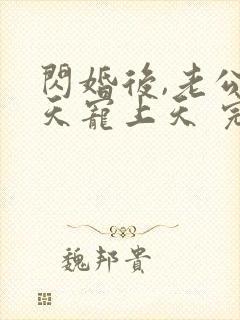 閃婚後,老公
天寵上天 完
魏邦貴